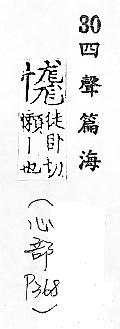 30 四聲篇海
徒卧切
懶｜也
(心部 P.368)